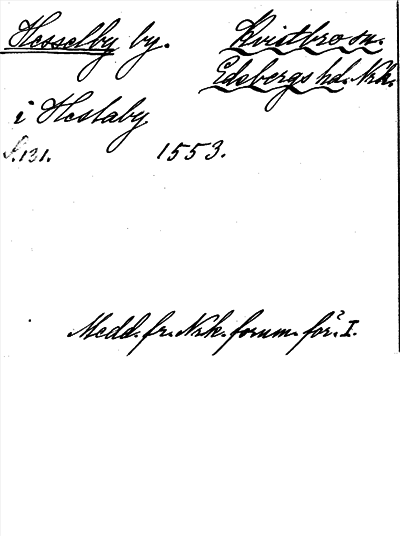 Hesselby by. Kvistbro sn.
Edsbergs hd. Nrk.
i Heslaby
s. 131. 1553.
Medd. fr. Nrk. fornm. för. I.